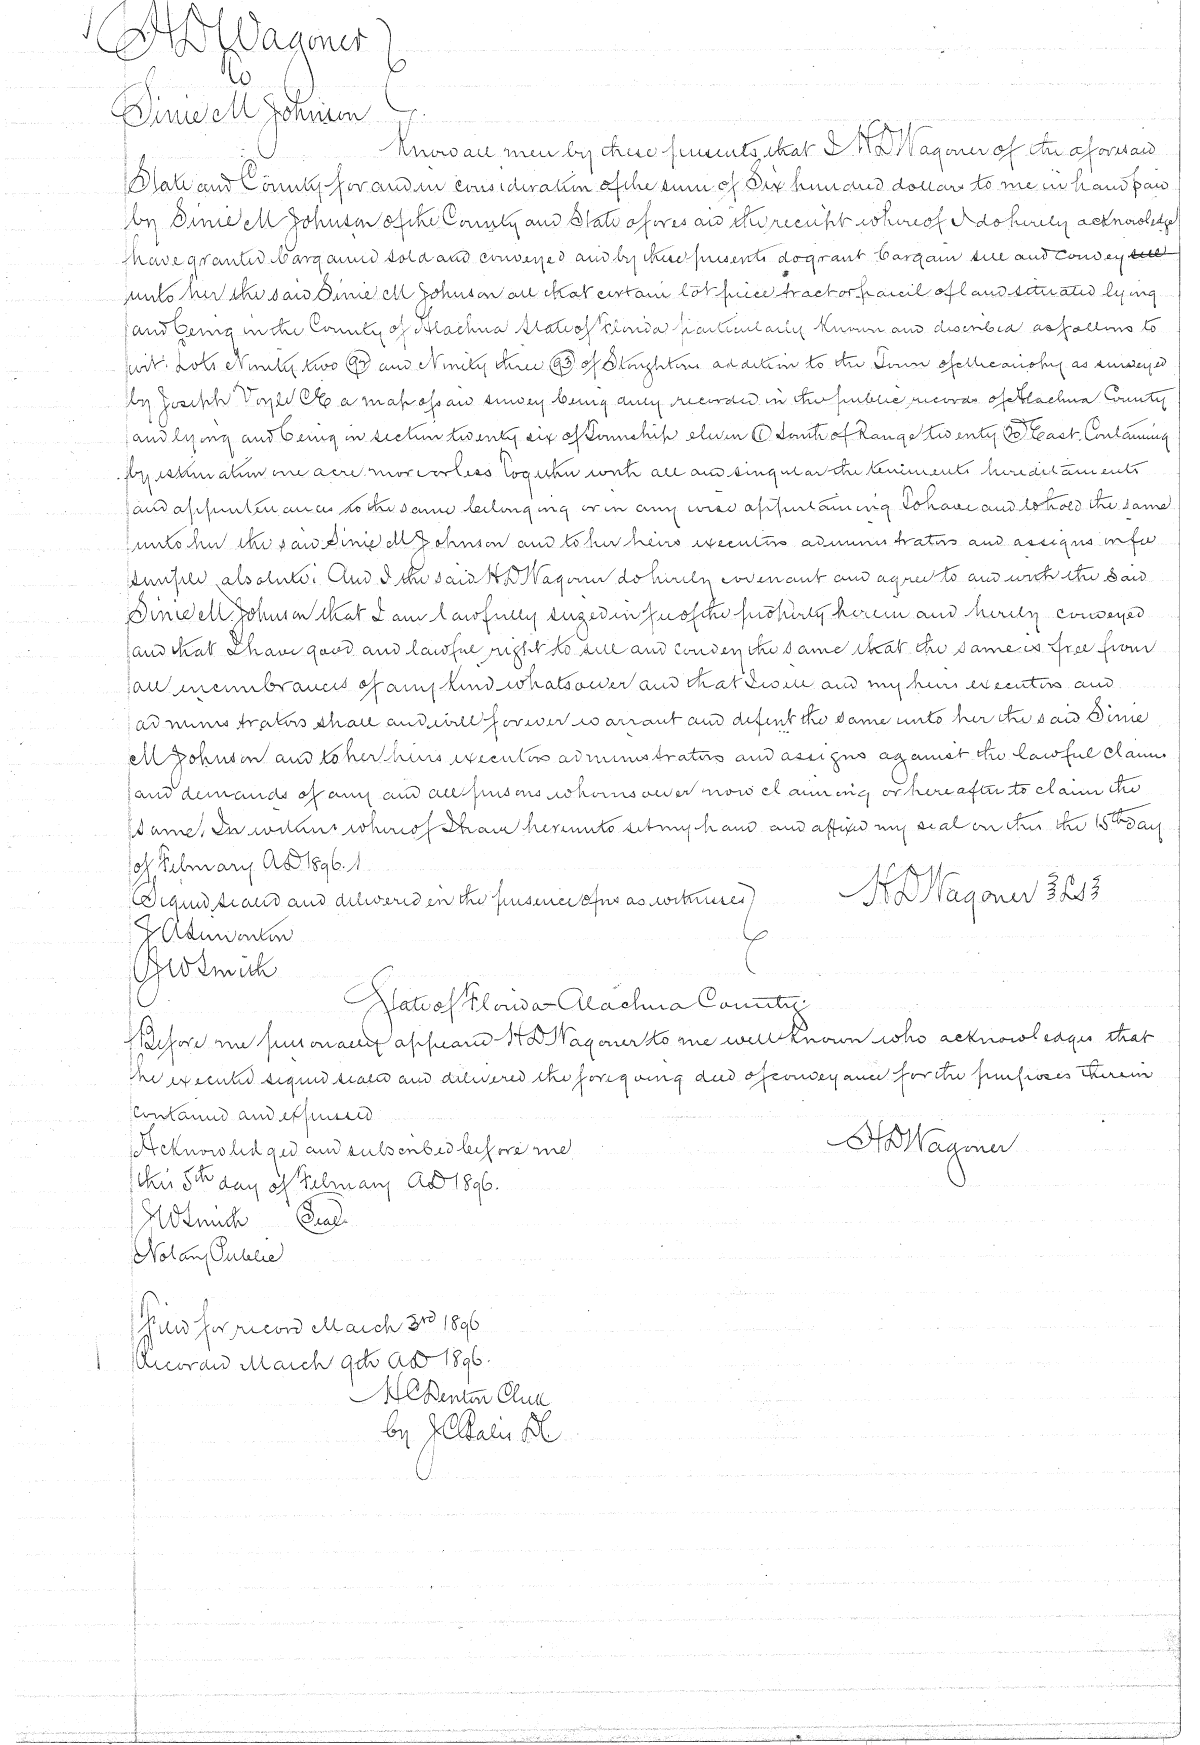 H D Wagoner
to
Sinie M Johnson
Know all men by these presents, that I H D Wagoner of the aforesaid
State and County for and in consideration of the sum of Six hundred dollars to me in hand paid
by Sinie M Johnson of the County and State aforesaid the receipt whereof I do hereby acknowledge
have granted bargained sold and conveyed and by these presents do grant bargain sell and convey sell
unto her the said Sinie M Johnson all that certain lot piece tract or parcel of land situated lying
and being in the County of Alachua State of Florida particularly known and described as follows to
wit. Lots Ninety two (92) and Ninety three (93) of Stoughtons addition to the Town of Micanopy as surveyed
by Joseph Voyle CE a map of said survey being duly recorded in the public records of Alachua County
and lying and being in section twenty six of Township eleven South of Range twenty (20) East. Containing
by estimation one acre more or less Together with all and singular the teniments hereditaments
and appurtenances to the same belonging or in any wise appertaining To have and to hold the same
unto her the said Sinie M Johnson and to her heirs executors administrators and assigns in fee
simple absolute; And I the said H D Wagoner do hereby covenant and agree to and with the Said
Sinie M. Johnson that I am lawfully seized in fee of the property herein and hereby conveyed
and that I have good and lawful right to sell and convey the same that the same is free from
all incumbrances of any kind whatsoever and that I will and my heirs executors and
administrators shall and will forever warrant and defent the same unto her the said Sinie
M Johnson and to her heirs executors administrators and assigns against the lawful claims
and demands of any and all persons whomsoever now claiming or hereafter to claim the
same. In witness whereof I have hereunto set my hand and affixed my seal on this the 15th day
of February AD 1896.
Signed sealed and delivered in the presence of us as witnesses H D Wagoner {LS}
J A Simonton
J W Smith
State of Florida - Alachua County.
Before me personally appeared H D Wagoner to me well known who acknowledges that
he executed signed sealed and delivered the foregoing deed of conveyance for the purposes therein
contained and expressed
Acknowledged and subscribed before me H D Wagoner
this 5th day of February AD 1896.
J W Smith Seal
Notary Public
Filed for record March 3rd 1896
Recorded March 9th AD 1896.
H C Denton Clerk
by J C DC